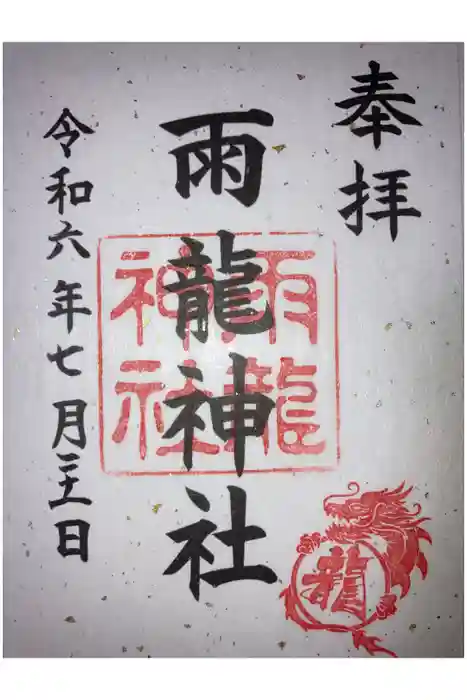 奉拝
雨龍神社
雨龍
神社
令和六年七月二十一日
龍